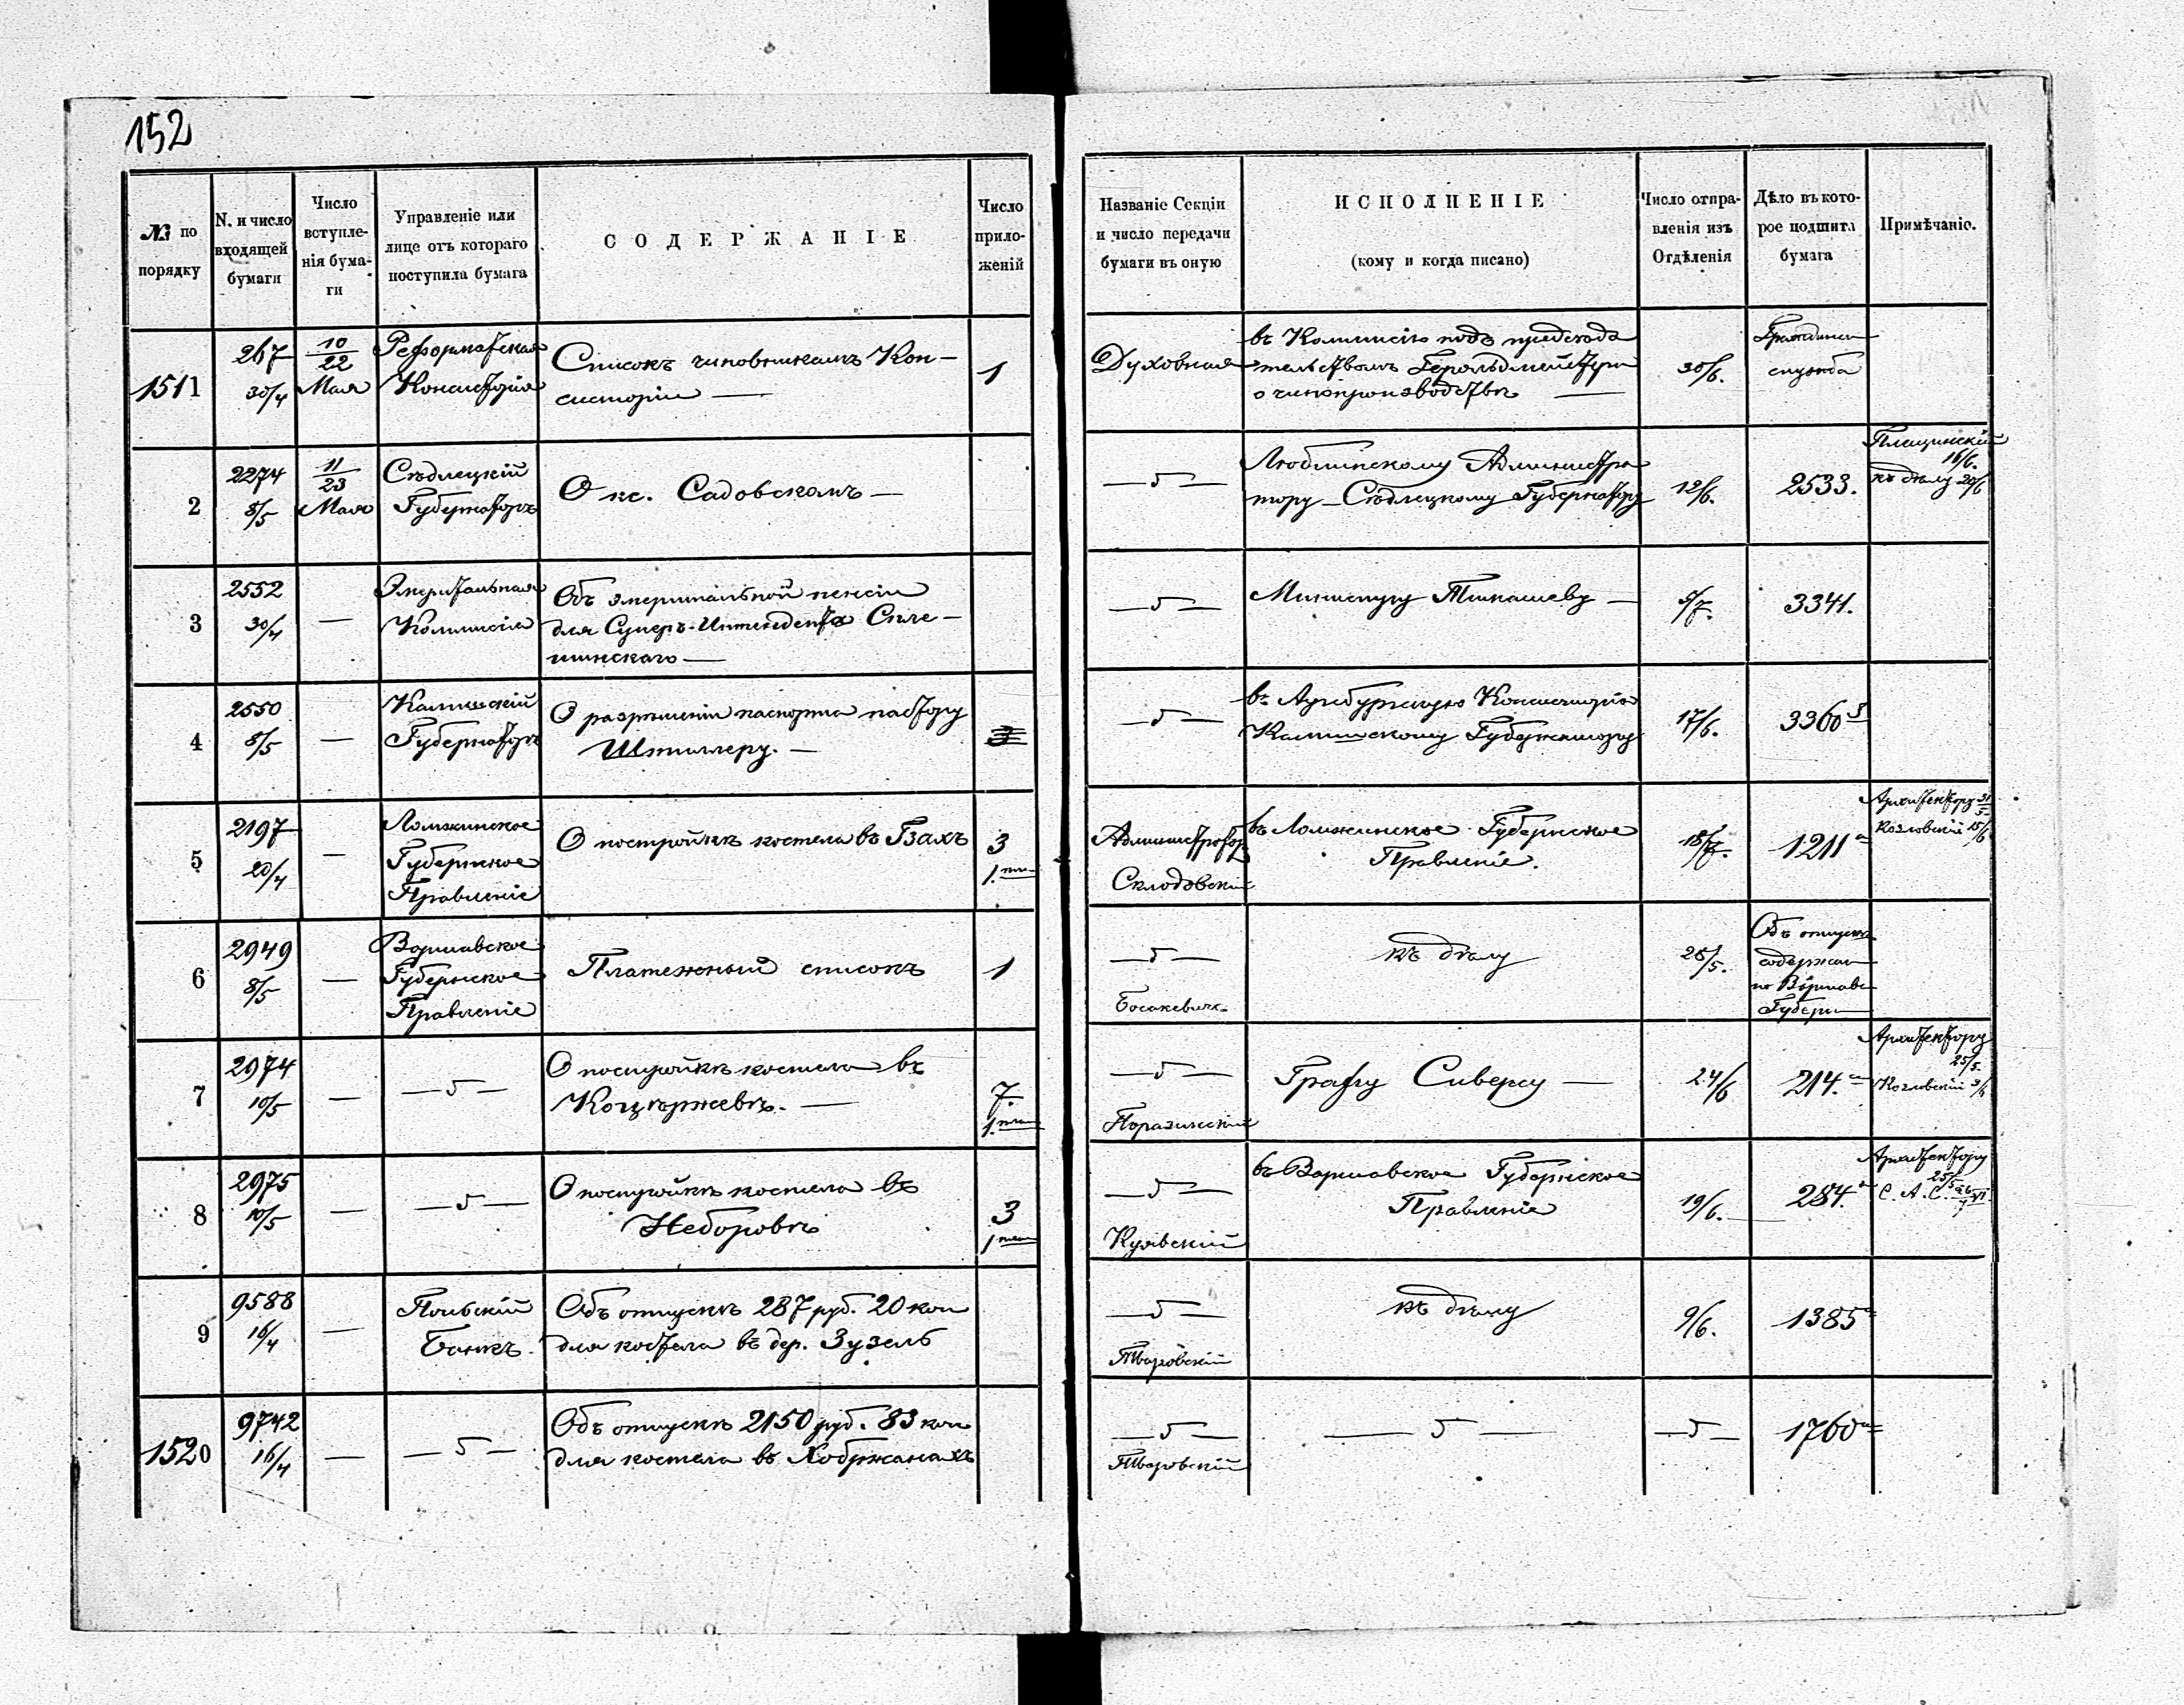 152
№ по порядку
N. и число входящей бумаги
Число вступле-нія бума-ги
Управленіе или лице отъ котораго поступила бумага
СОДЕРЖАНІЕ
Число прило-женій
Названіе Секціи и число передачи бумаги въ оную
ИСПОЛНЕНІЕ
(кому и когда писано)
Число отпра-вленія изъ Отдѣленія
Дѣло въ кото-рое подшита бумага
Примѣчаніе.
1511
267 30/4
10/22 Мая
Реформатская Консисторія
Списокъ чиновникамъ Кон-
систоріи —
1
Духовная
въ Коммисію подъ предсѣда-
тельствомъ Герольдмейстера
о чинопроизводствѣ —
30/6.
служба
2
2274 8/5
11/23 Мая
Сѣдлецкій Губернаторъ
О кс. Садовскомъ —
—5—
Люблинскому Администра-
тору — Сѣдлецкому Губернатору
12/6.
2533.
16/6.
къ дѣлу 20/6
3
2552 30/4
—
Эмеритальная Коммисія
Объ эмеритальной пенсіи
для Суперъ-Интендента Спле-
шинскаго —
—5—
Министру Тимашеву —
5/7.
3341.
4
2550 8/5
—
Калишскій Губернаторъ
О разрѣшеніи паспорта пастору
Штиллеру. —
—5—
въ Аугсбургскую Консисторію
Калишскому Губернатору
17/6.
3360
5
2197 20/4
—
Ломжинское Губернское Правленіе
О постройкѣ костела въ Гзахъ
3
1.
Администратор
Склодовскій
въ Ломжинское Губернское
Правленіе.
18/7.
1211
Архитектору
Козловскій 15/6
6
2949 8/5
—
Варшавское Губернское Правленіе
Платежный списокъ
1
—5—
къ дѣлу
25/5.
Объ отпуск
содержан
по Варшавс
Губерн
7
2974 10/5
—
—5—
О постройкѣ костела въ
Коцѣржевѣ. —
7.
1.
—5—
Графу Сиверсу —
24/6
214.
Архитектору
25/5.
Козловскій
8
2975 10/5
—
—5—
О постройкѣ костела въ
Неборовѣ
3
1
—5—
Куявскій
въ Варшавское Губернское
Правленіе
19/6.
284.
Архитектору
25/5
С. А. С.
9
9588 16/4
—
Польскій Банкъ.
Объ отпускѣ 287 руб. 20 коп
для костела въ дер. Зузель
—5—
Тваровскій
къ дѣлу
9/6.
1385
1520
9742 16/4
—
—5—
Объ отпускѣ 2150 руб. 83 коп
для костела въ Хобржанахъ
—5—
Тваровскій
—5—
—5—
1760